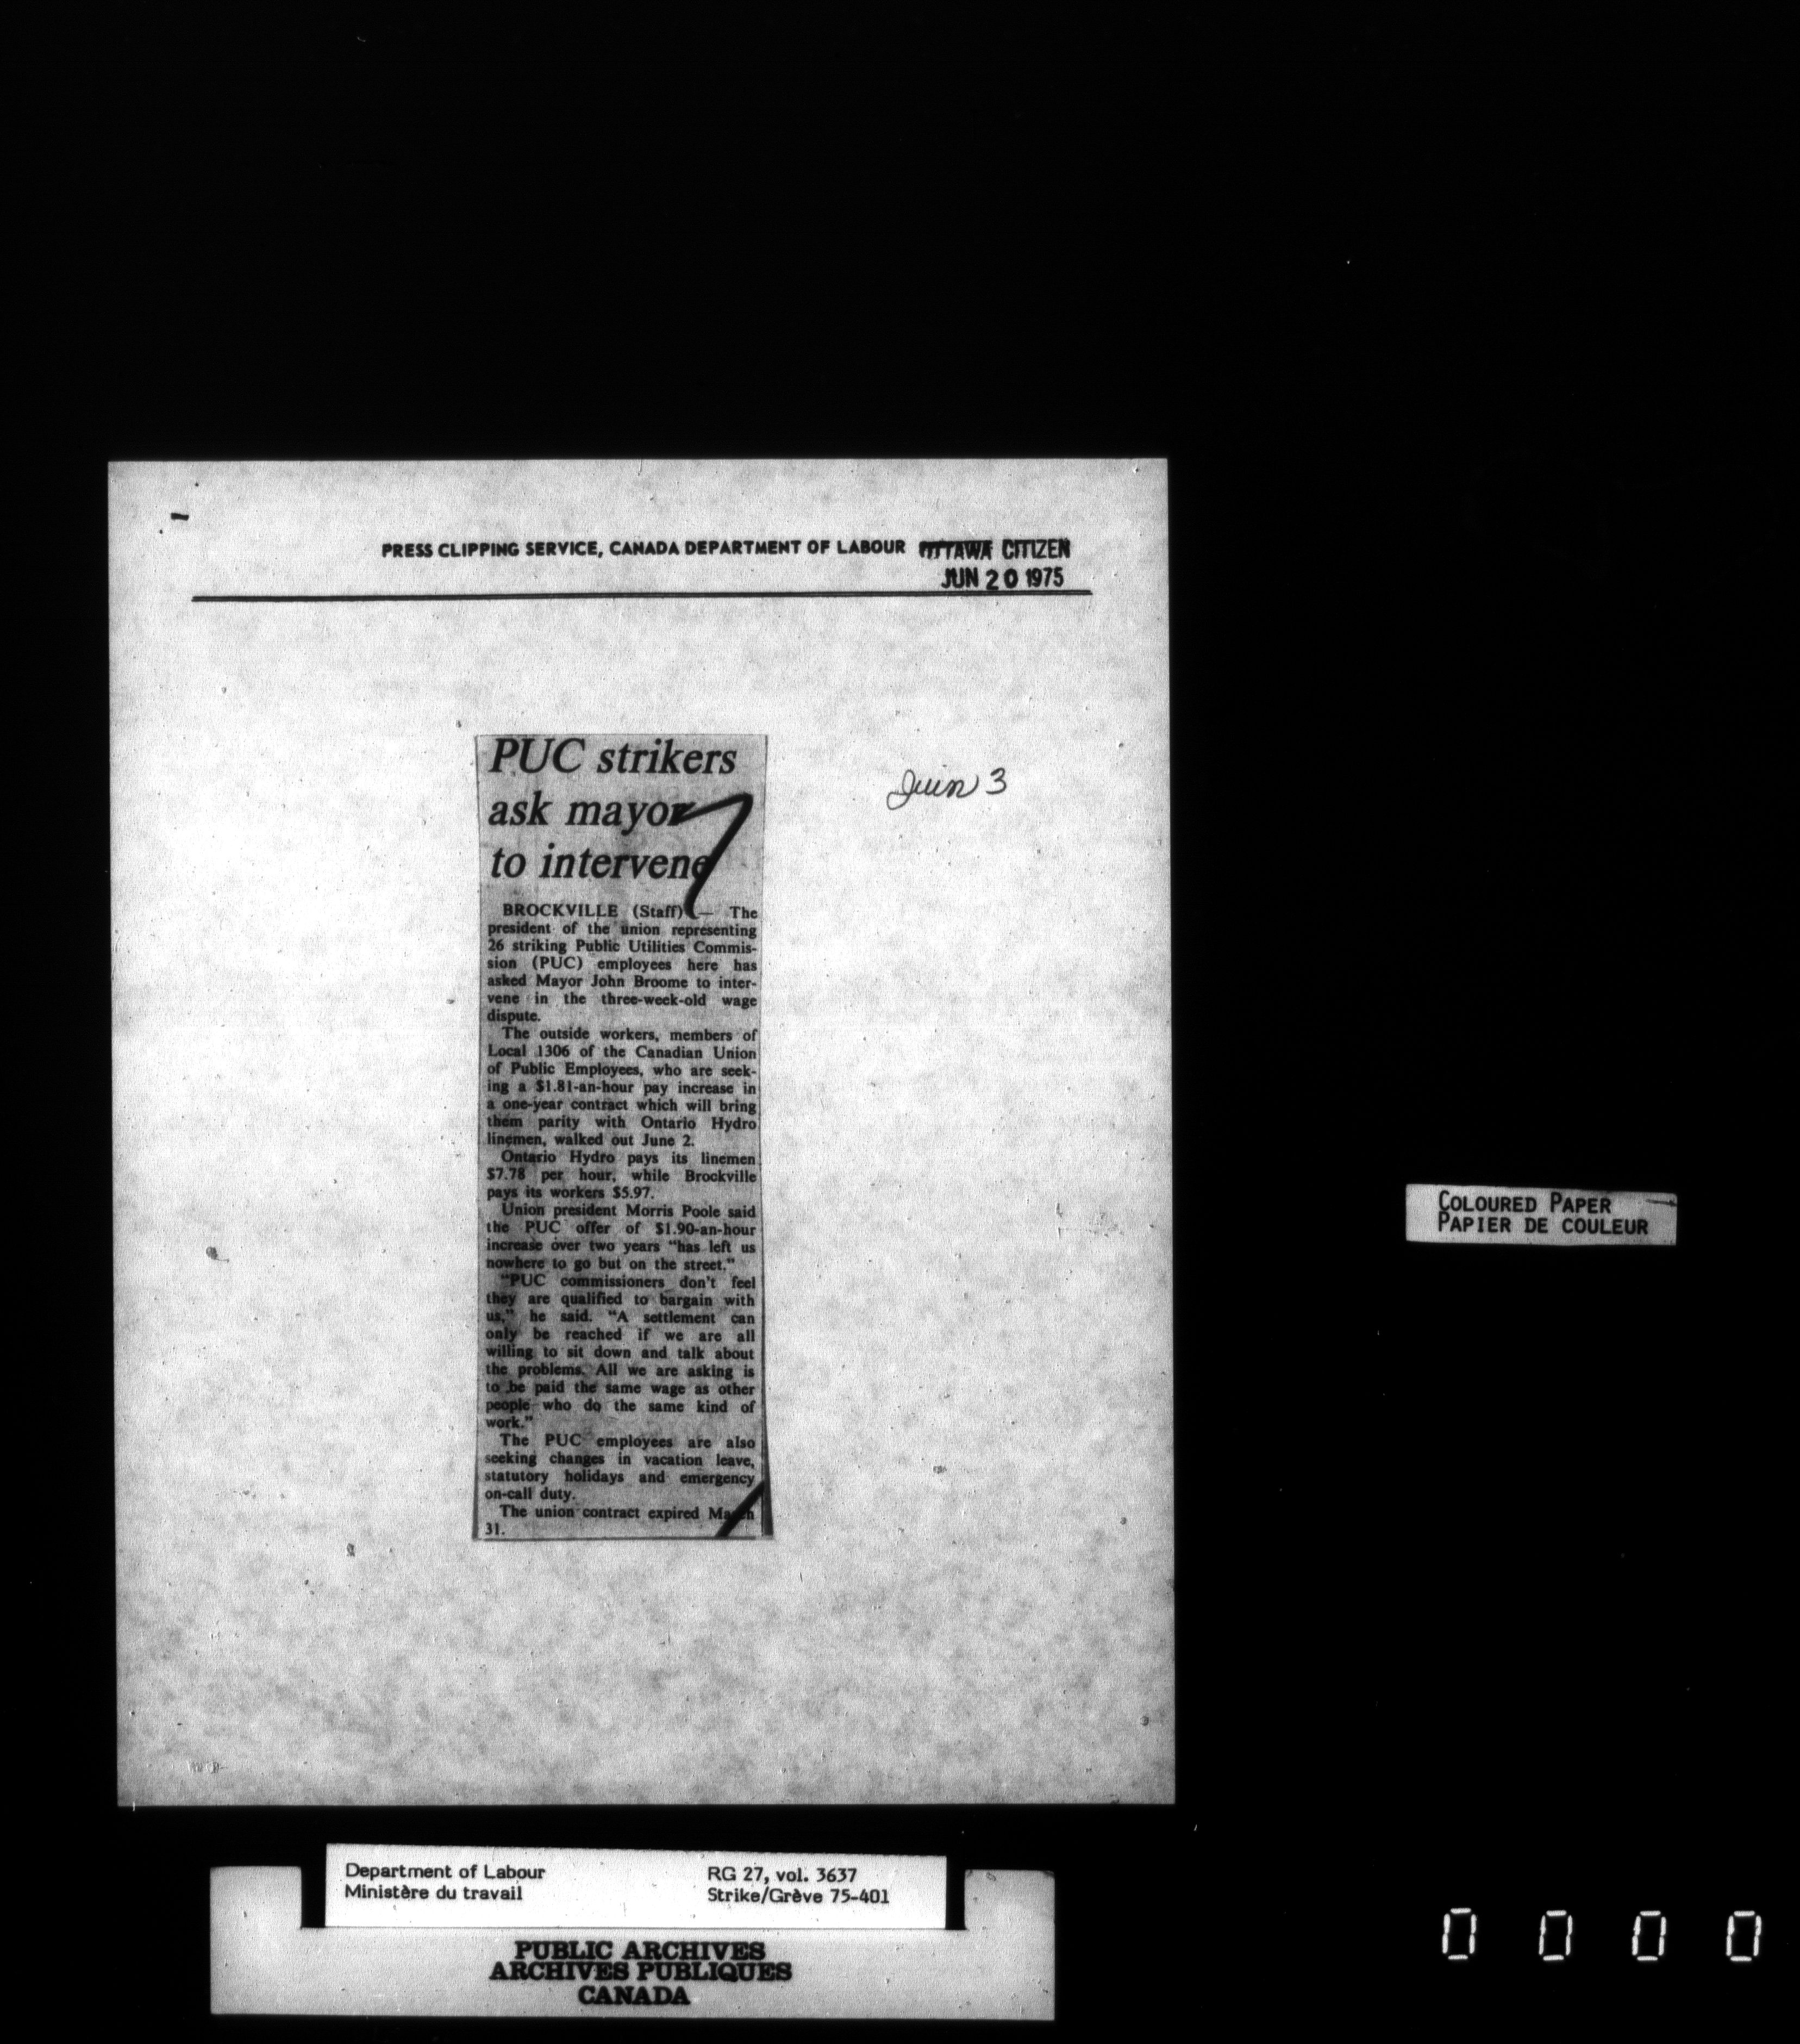 PRESS CLIPPING SERVICE, CANADA DEPARTMENT OF LABOUR OTTAWA CITIZEN
JUN 20 1975
Juin 3
PUC strikers
ask mayor
to intervene
BROCKVILLE (Staff) — The
president of the union representing
26 striking Public Utilities Commis-
sion (PUC) employees here has
asked Mayor John Broome to inter-
vene in the three-week-old wage
dispute.
The outside workers, members of
Local 1306 of the Canadian Union
of Public Employees, who are seek-
ing a $1.81-an-hour pay increase in
a one-year contract which will bring
them parity with Ontario Hydro
linemen, walked out June 2.
Ontario Hydro pays its linemen
$7.78 per hour, while Brockville
pays its workers $5.97.
Union president Morris Poole said
the PUC offer of $1.90-an-hour
increase over two years “has left us
nowhere to go but on the street.”
“PUC commissioners don't feel
they are qualified to bargain with
us,” he said. “A settlement can
only be reached if we are all
willing to sit down and talk about
the problems. All we are asking is
to be paid the same wage as other
people who do the same kind of
work.”
The PUC employees are also
seeking changes in vacation leave,
statutory holidays and emergency
on-call duty.
The union contract expired March
31.
COLOURED PAPER
PAPIER DE COULEUR
Department of Labour
Ministère du travail
RG 27, vol. 3637
Strike/Grève 75-401
PUBLIC ARCHIVES
ARCHIVES PUBLIQUES
CANADA
0 0 0 0